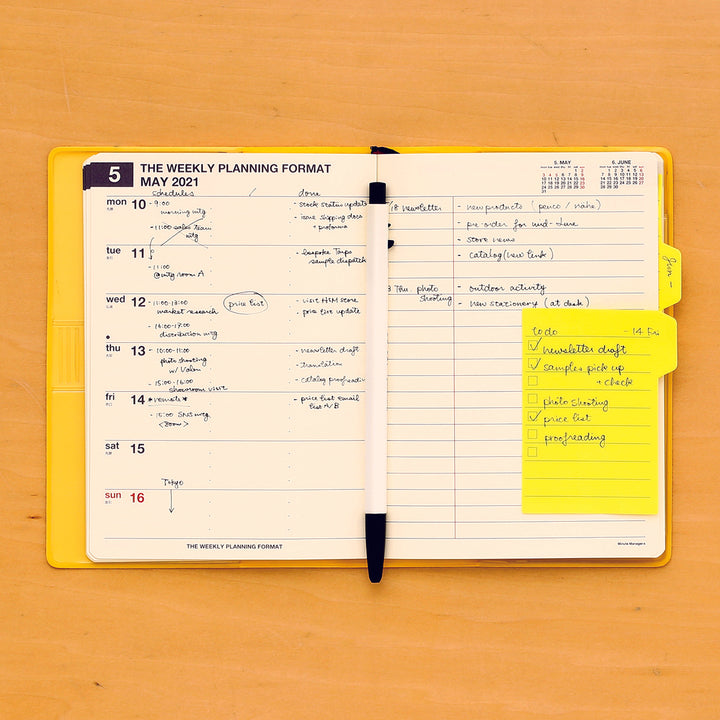 5
THE WEEKLY PLANNING FORMAT
MAY 2021
schedules
done
mon 10
- 9:00
morning mtg
- 11:00 sales team
mtg
- stock status update
- issue shipping docs
+ proforma
tue 11
- 11:00
@mtg room A
- bespoke Tarps
sample dispatch
wed 12
- 11:00-13:00
market research
- 16:00-17:00
distribution mtg
price list
- visit H&M store
- price list update
thu 13
- 10:00-11:00
photo shooting
w/ Valon
- 15:00-16:00
showroom visit
- newsletter draft
- translation
- catalog proofreadin
fri 14
*remote*
- 15:00 SNS mtg
<zoom>
- price list email
list A/B
sat 15
sun 16
Tokyo
THE WEEKLY PLANNING FORMAT
5. MAY
6. JUNE
18 newsletter
- new products (penco / nähe)
- pre order for mid-June
- store news
- catalog (new link)
Thu. photo
shooting
- outdoor activity
- new stationery (at desk)
Jun-
to do
- 14 Fri
newsletter draft
samples pick up
+ check
photo shooting
price list
proofreading